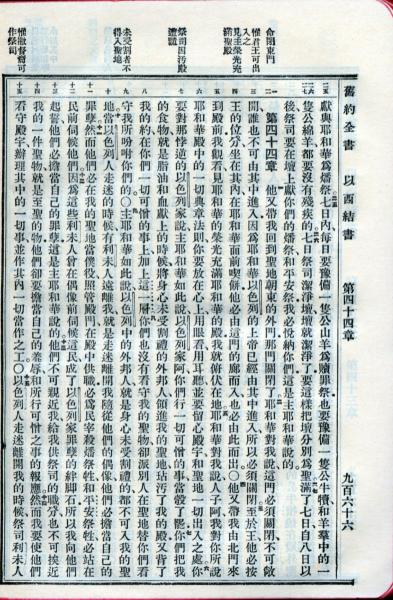 舊約全書　以西結書　第四十四章　九百六十六
命閉東門
惟君王可出
入之
見主榮光充
滿聖殿
祭司因污殿
未受割者不
得入聖地
惟撒督裔可
作祭司
獻與耶和華為燔祭七日內每日要豫備一隻公山羊為贖罪祭也要豫備一隻公牛犢和羊羣中的一
隻公綿羊都要沒有殘疾的七日祭司潔淨壇壇就潔淨了要這樣把壇分別為聖滿了七日自八日以
後祭司要在壇上獻你們的燔祭和平安祭我必悅納你們這是主耶和華說的
第四十四章　他又帶我回到聖地朝東的外門那門關閉了耶和華對我說這門必須關閉不可敞
開誰也不可由其中進入因為耶和華以色列的上帝已經由其中進入所以必須關閉至於王他必按
王的位分坐在其內在耶和華面前喫餅他必由這門的廊而入也必由此而出○他又帶我由北門來
到殿前我觀看見耶和華的榮光充滿耶和華的殿我就俯伏在地耶和華對我說人子阿我對你所說
耶和華殿中的一切典章法則你要放在心上用眼看用耳聽並要留心殿宇和聖地一切出入之處你
要對那悖逆的以色列家說主耶和華如此說以色列家阿你們行一切可憎的事當彀了罷你們把我
的食物就是脂油和血獻上的時候將身心未受割禮的外邦人領進我的聖地玷污了我的殿又背了
我的約在你們一切可憎的事上加上這一層你們也沒有看守我的聖物卻派別人在聖地替你們看
守我所吩咐你們的○主耶和華如此說以色列中的外邦人就是身心未受割禮的都不可入我的聖
地當以色列人走迷的時候有利未人遠離我就是走迷離開我隨從他們的偶像他們必擔當自己的
罪孽然而他們必在我的聖地當僕役照管殿門在殿中供職必為民宰殺燔祭牲和平安祭牲必站在
民前伺候他們因為這些利未人曾在偶像前伺候這民成了以色列家罪孽的絆腳石所以我向他們
起誓他們必擔當自己的罪孽這是主耶和華說的他們不可親近我給我供祭司的職分也不可挨近
我的一件聖物就是至聖的物他們卻要擔當自己的羞辱和所行可憎之事的報應然而我要使他們
看守殿宇辦理其中的一切事並作其內一切當作之工○以色列人走迷離開我的時候祭司利未人